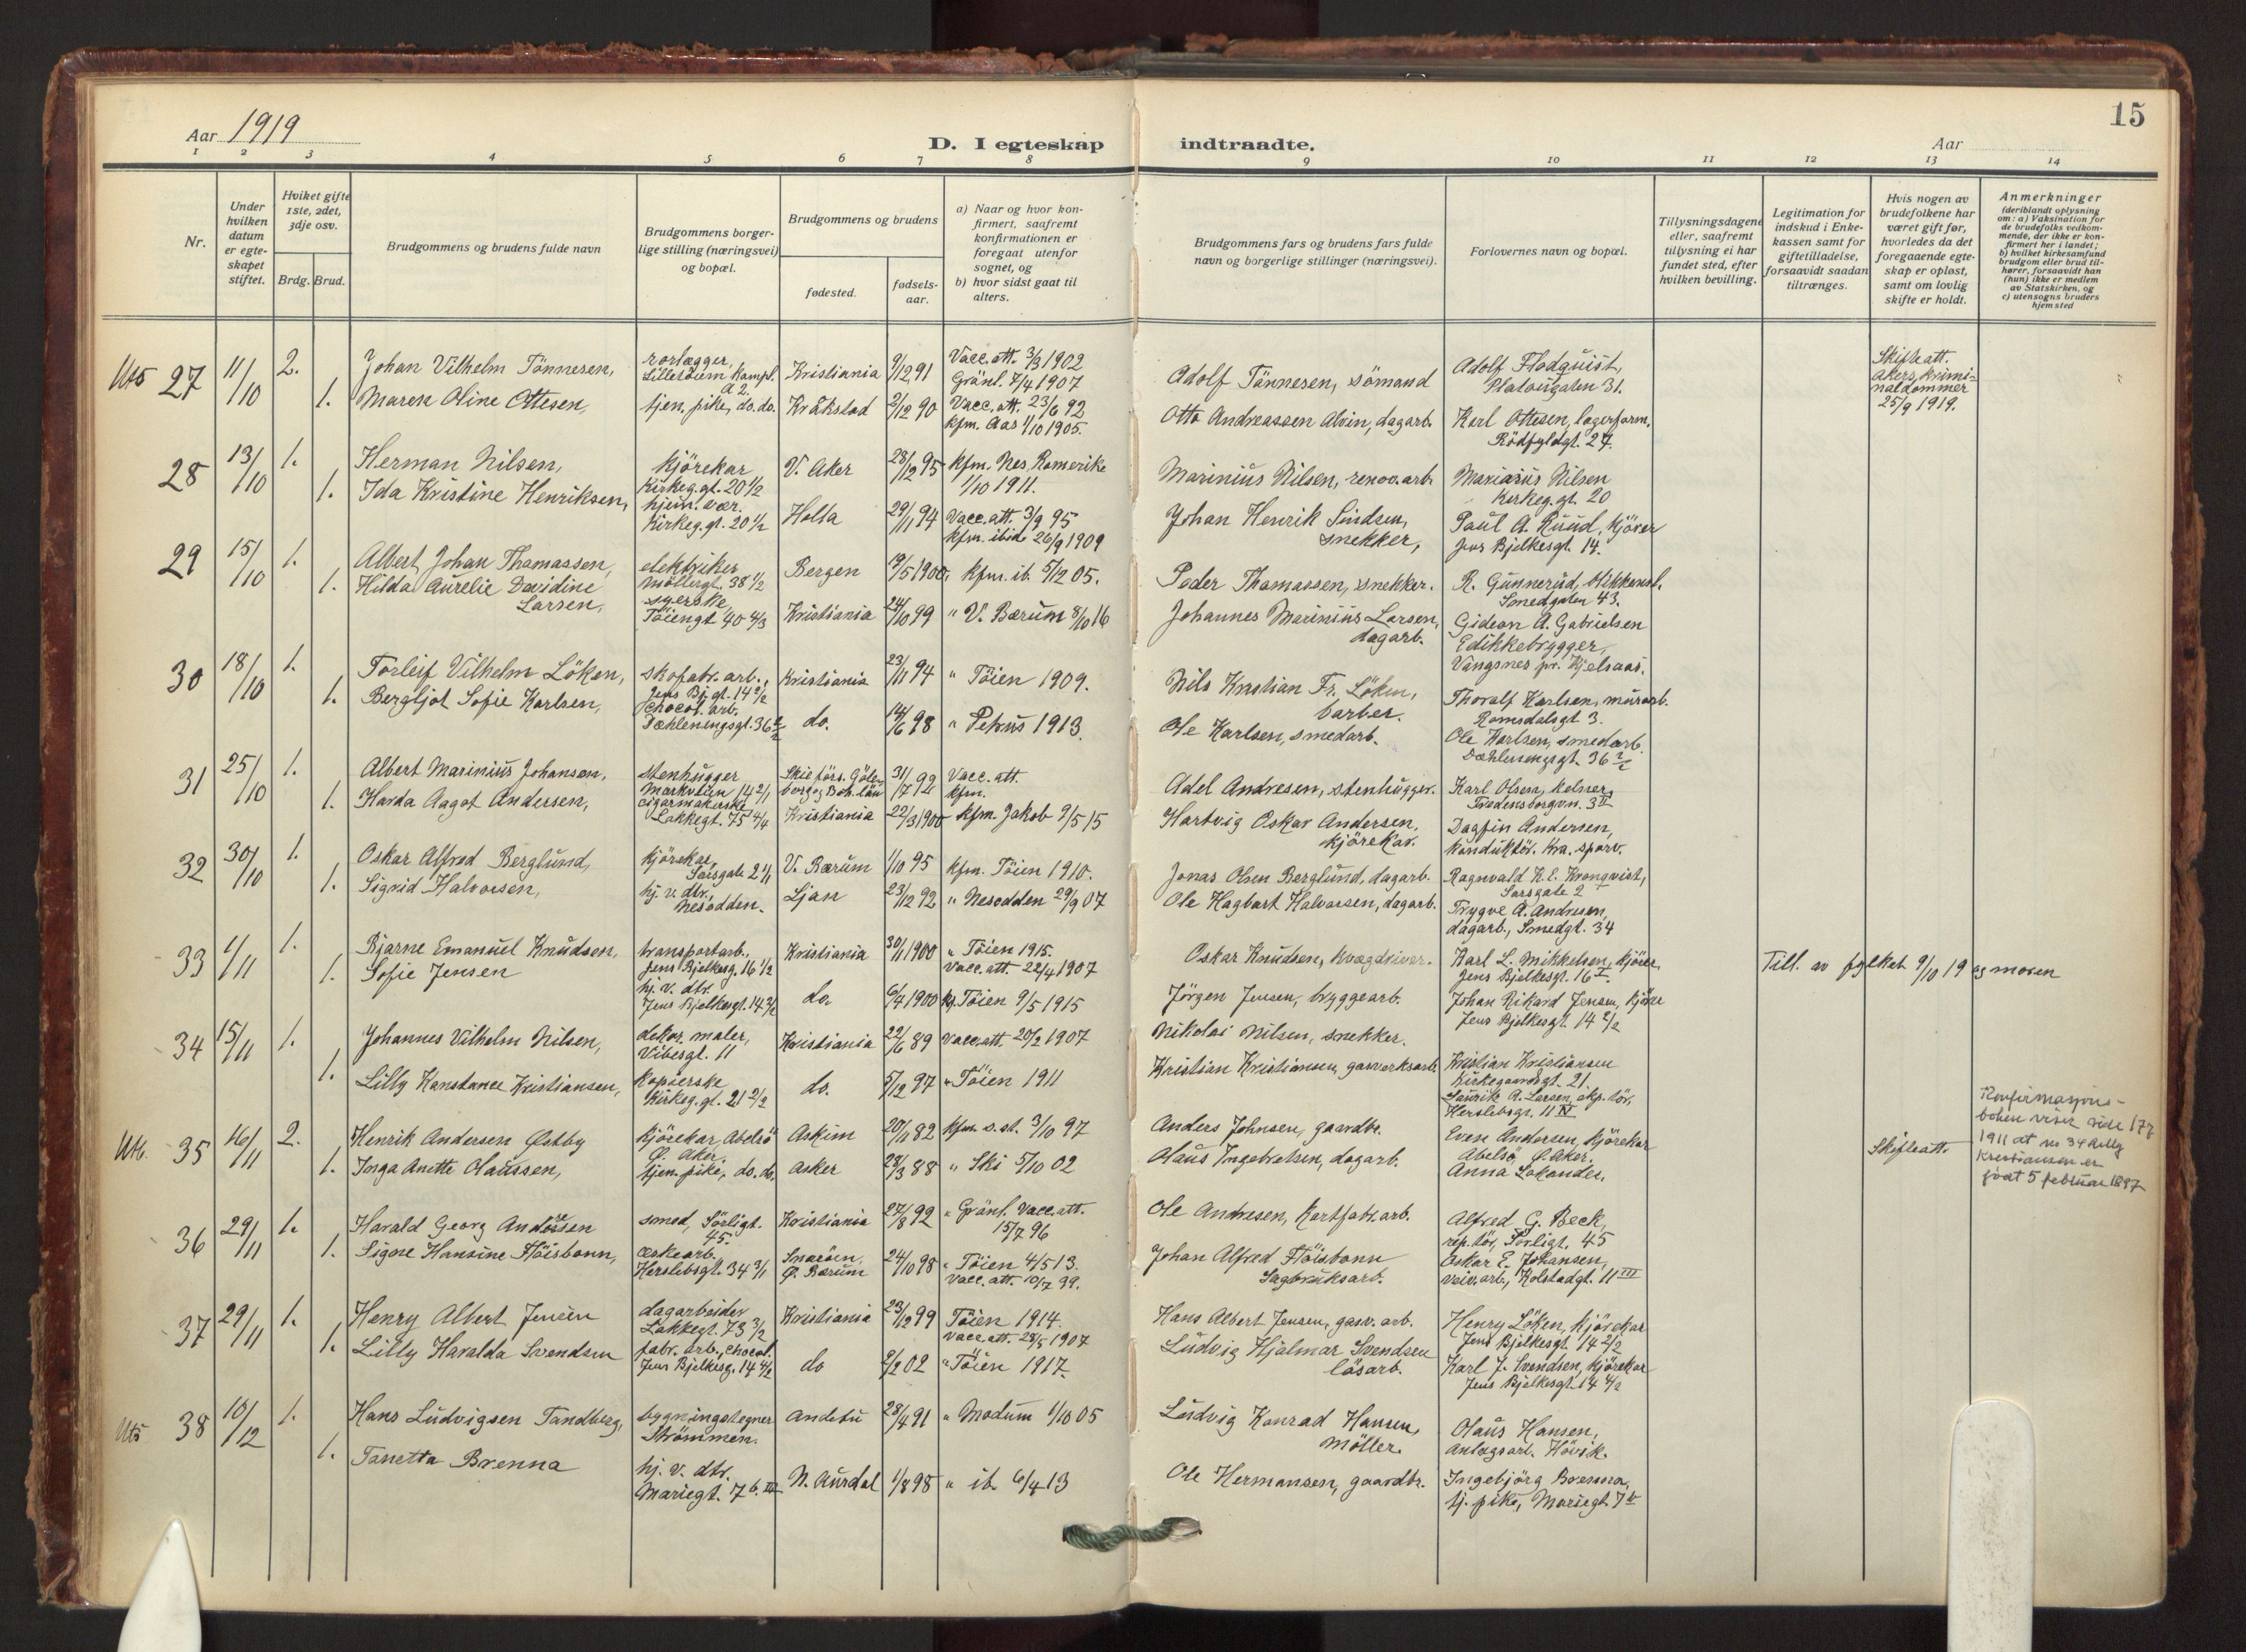 15
Aar 1919
D. I egteskap indtraadte.
Aar
1 2 3 4 5 6 7 8 9 10 11 12 13 14
Nr.
Under hvilken datum er egteskapet stiftet.
Hvilket gifte 1ste, 2det, 3dje osv.
Brdg. Brud.
Brudgommens og brudens fulde navn
Brudgommens borgerlige stilling (næringsvei) og bopæl.
Brudgommens og brudens
fødested.
fødselsaar.
a) Naar og hvor konfirmert, saafremt konfirmationen er foregaat utenfor sognet, og
b) hvor sidst gaat til alters.
Brudgommens fars og brudens fars fulde navn og borgerlige stillinger (næringsvei).
Forlovernes navn og bopæl.
Tillysningsdagene eller, saafremt tillysning ei har fundet sted, efter hvilken bevilling.
Legitimation for indskud i Enkekassen samt for giftetilladelse, forsaavidt saadan tiltrænges.
Hvis nogen av brudefolkene har været gift før, hvorledes da det foregaaende egteskap er opløst, samt om lovlig skifte er holdt.
Anmerkninger (deriblandt oplysning om: a) Vaksination for de brudefolks vedkommende, der ikke er konfirmert her i landet; b) hvilket kirkesamfund brudgom eller brud tilhører, forsaavidt han (hun) ikke er medlem av Statskirken, og c) utensogns bruders hjemsted
27 11/10 2. Johan Vilhelm Tönnesen, rørlægger, Kristiania 9/12 91 Vacc. att. 3/3 1902 Grönl. 7/4 1907 Adolf Tönnesen, sömand Adolf Flodquist, Platougaten 31. Skifteatt. Akers krimi-naldommer 25/9 1919.
1. Maren Oline Ottesen, tjen. pike, do. do. Kråkstad 2/12 90 Vacc. att. 23/6 92 kfm. Aas 1/10 1905. Otto Andreassen Alvin, dagarb. Karl Ottesen, lagerform. Rödfyldgt. 27.
28 13/10 1. Herman Nilsen, kjörekar Kirkeg.gt. 20 1/2 V. Aker 28/12 95 kfm. Nes, Romerike 1/10 1911. Marinius Nilsen, renov.arb. Marinius Nilsen Kirkeg.gt. 20
1. Ida Kristine Henriksen, hjem. vær. Kirkeg.gt. 20 1/2 Holla 29/11 94 Vacc. att. 3/9 95 kfm. ibid 26/9 1909 Johan Henrik Sindsen, snekker, Paul A. Ruud, kjörer Jens Bjelkesgt. 14.
29 15/10 1. Albert Johan Thomassen, elektriker Möllergt. 38 1/2 Bergen 19/5 1900, kfm. ib. 5/12 05. Peder Thomassen, snekker. R. Gunnerud, Smedgaten 43.
1. Hilda Aurelie Davidine Larsen, syerske, Töiengt. 40 4/3 Kristiania 24/10 99 " V. Bærum 8/10 16 Johannes Marinius Larsen, dagarb. Gideon A. Gabrielsen Edikkebrygger, Vangsnes pr. Kjelsaas.
30 18/10 1. Torleif Vilhelm Löken, skofabr. arb., Jens Bj. gt. 14 2/2 Kristiania 23/11 94 " Töien 1909. Nils Kristian Fr. Löken, barber. Thoralf Karlsen, murarb. Romsdalsgt. 3.
1. Bergljot Sofie Karlsen, chocol. arb. Dæhleningsgt. 36 2/2 do. 14/6 98 " Petrus 1913. Ole Karlsen, smedarb. Ole Karlsen, smedarb. Dæhlenengsgt. 36 2/2
31 25/10 1. Albert Marinius Johansen, stenhugger Markveien 14 2/1 31/7 92 Vacc. att. kfm. Adel Andresen, stenhugger. Karl Olsen, kelner, Fredensborgvn. 3 II
1. Harda Aagot Andersen, cigarmakerske Lakkegt. 75 4/4 Kristiania 22/3 1900 kfm. Jakob 9/5 15 Hartvig Oskar Andersen, kjörekar. Dagfin Andersen, konduktör. Kra. sporv.
32 30/10 1. Oskar Alfred Berglund, kjörekar, Sarsgate 2 1/1 V. Bærum 1/10 95 kfm. Töien 1910. Jonas Olsen Berglund, dagarb. Ragnvald K. E. Kronqvist, Sarsgate 2
1. Sigrid Halvorsen, hj. v. dtr., Nesodden. Ljan 23/12 92 " Nesodden 29/9 07 Ole Hagbart Halvorsen, dagarb. Trygve A. Andresen, dagarb., Smedgt. 34
33 1/11 1. Bjarne Emanuel Knudsen, transportarb., Jens Bjelkesg. 16 1/2 Kristiania 30/1 1900 " Töien 1915. Vacc. att. 22/4 1907 Oskar Knudsen, kvægdriver. Karl L. Mikkelsen, kjörer, Jens Bjelkesgt. 16 I. Till. av fylket 9/10 19 og moren
1. Sofie Jensen hj. v. dtr. Jens Bjelkesgt. 14 2/2 do. 6/4 1900 kf. Töien 9/5 1915 Jörgen Jensen, bryggearb. Johan Rikard Jensen, kjörer Jens Bjelkesgt. 14 2/2
34 15/11 1. Johannes Vilhelm Nilsen, dekor. maler, Vibesgt. 11 Kristiania 22/6 89 Vacc. att. 20/2 1907 Nikolai Nilsen, snekker. Kristian Kristiansen Kirkegaardsgt. 21.
1. Lilly Konstance Kristiansen, kopierske Kirkeg.gt. 21 2/2 do. 5/12 97 " Töien 1911 Kristian Kristiansen, gasverksarb. Laurik A. Larsen, eksp. tör, Herslebsgt. 11 IV
35 16/11 2. Henrik Andersen Østby kjörekar, Abelsö Ø. Aker. Askim 20/11 82 kfm. s. st. 3/10 97 Anders Johnsen, gaardbr. Even Andersen, kjörekar Abelsö, Ø. Aker. Skifteatt. Konfirmasjons-boken viser side 177 1911 at nr 34 Lilly Kristiansen er født 5 februar 1897
1. Inga Anette Olaussen, tjen. pike, do. do. Asker 28/3 88 " Ski 5/10 02 Olaus Ingebretsen, dagarb. Anna Lokander.
36 29/11 1. Harald Georg Andersen smed, Sörligt. 45. Kristiania 27/8 92 " Grönl. Vacc. att. 15/7 96 Ole Andresen, kartfabr. arb. Alfred G. Beck, rep. tör, Sörligt. 45
1. Signe Hansine Höisbonn, æskearb. Herslebsgt. 34 3/1 Snaröen, Ø. Bærum 24/10 98 " Töien 4/5 13. Vacc. att. 10/7 99. Johan Alfred Höisbonn Sagbruksarb. Oskar E. Johansen, veiv.arb., Kolstadgt. 11 III
37 29/11 1. Henry Albert Jensen dagarbeider Lakkegt. 73 3/2 Kristiania 23/12 99 Töien 1914. Vacc. att. 28/5 1907 Hans Albert Jensen, gasv. arb. Henry Löken, kjörekar Jens Bjelkesgt. 14 2/2
1. Lilly Haralda Svendsen fabr. arb., chocol. Jens Bjelkesg. 14 4/2 do 2/2 02 " Töien 1917. Ludvig Hjalmar Svendsen lösarb. Karl J. Svendsen, kjörekar Jens Bjelkesgt. 14 4/2
38 10/12 1. Hans Ludvigsen Tandberg, bygningstegner Strömmen. Andebu 28/4 91 " Modum 1/10 05 Ludvig Konrad Hansen, möller. Olaus Hansen, anlægsarb. Hövik.
1. Tanetta Brenna hj. v. dtr. Mariegt. 7 b. III N. Aurdal 1/8 98 " ib. 6/4 13 Ole Hermansen, gaardbr. Ingebjörg Brenna, tj. pike, Mariegt. 7 b